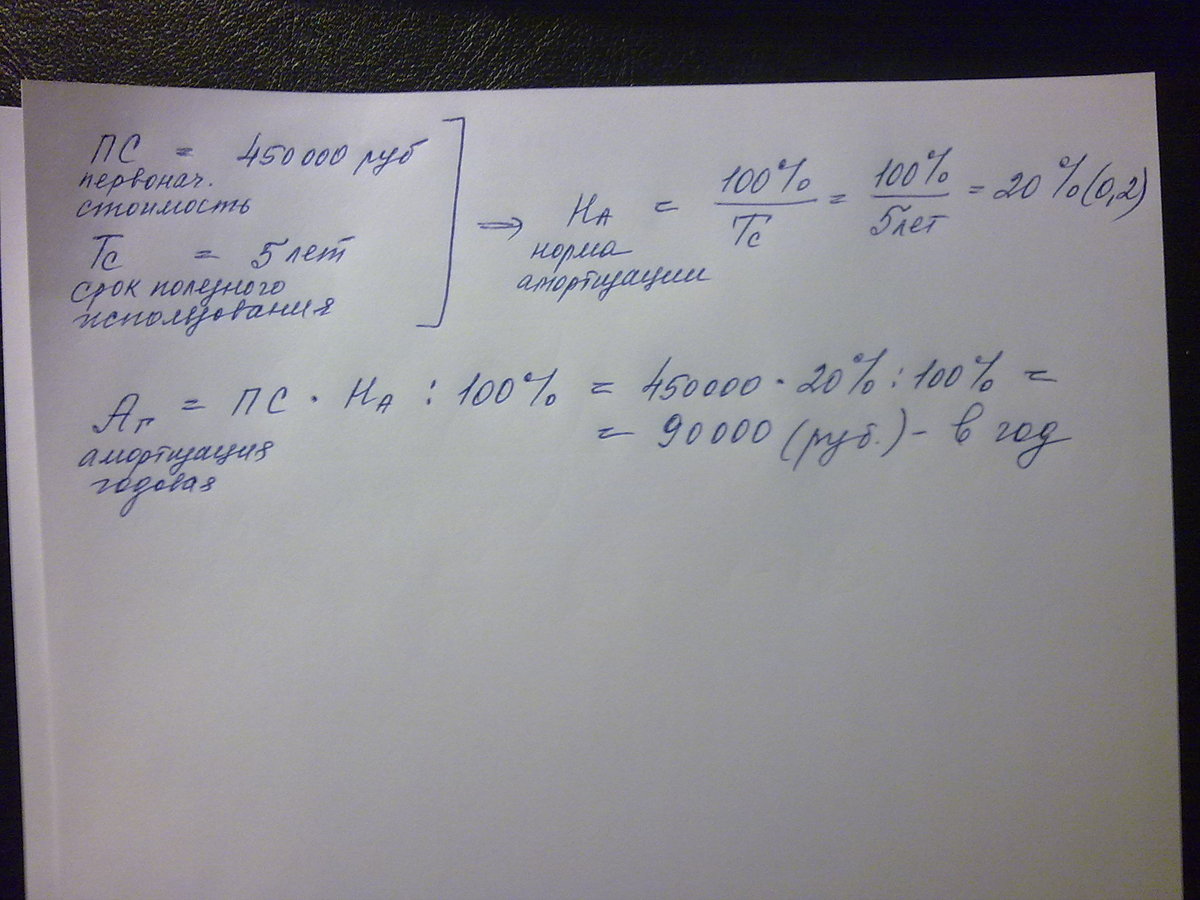 ПС = 450000 руб
первонач.
стоимость
Тс = 5 лет
срок полезного
использования
⇒ НА = 100% / Тс = 100% / 5 лет = 20% (0,2)
норма
амортизации
Аг = ПС · НА : 100% = 450000 · 20% : 100% =
амортизация
годовая
= 90000 (руб.) - в год